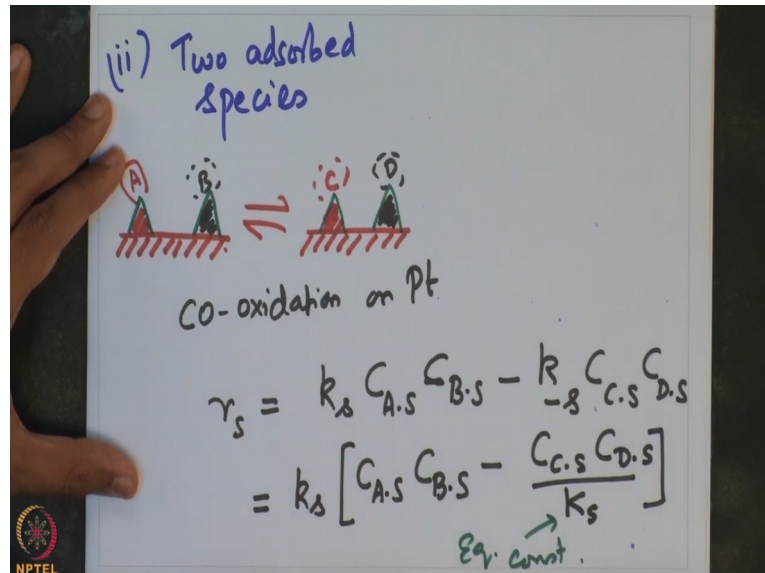 (ii) Two adsorbed
species
A B ⇌ C D
CO-oxidation on Pt
r_s = k_s C_{A.S} C_{B.S} - k_{-s} C_{C.S} C_{D.S}
= k_s [ C_{A.S} C_{B.S} - \frac{C_{C.S} C_{D.S}}{K_s} ]
Eq. const.
NPTEL